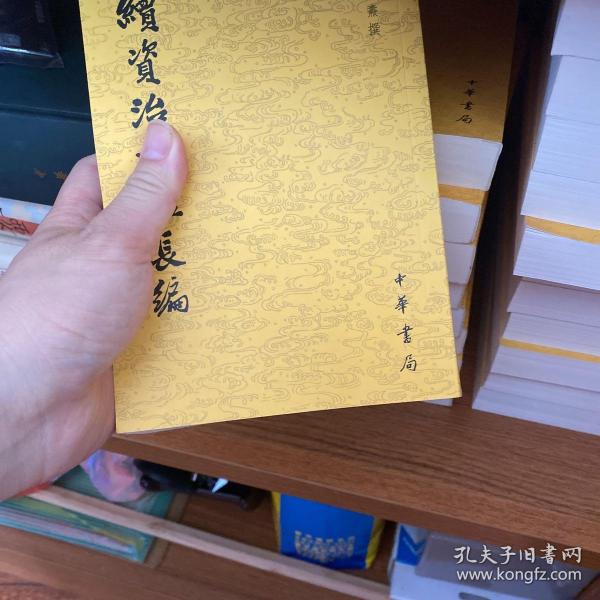 續資治
長編
燾撰
中華書局
中華書局
孔夫子旧书网
www.kongfz.com